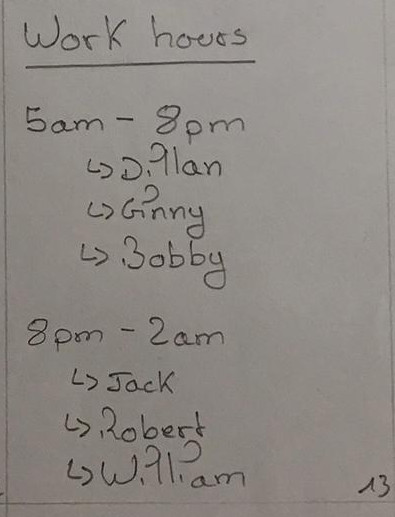 Work hours
5am - 8pm
↳ Dillan
↳ Ginny
↳ Bobby
8pm - 2am
↳ Jack
↳ Robert
↳ William
13